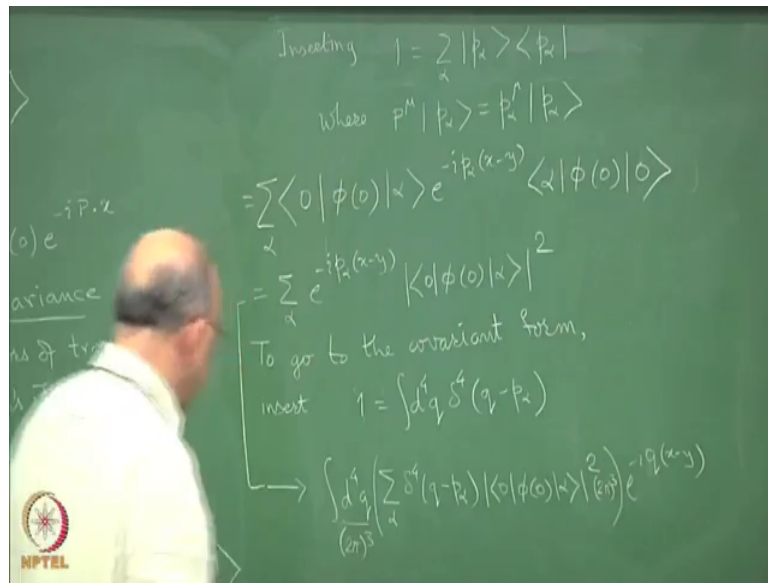 Inserting 1 = ∑_α |p_α><p_α|
where P^μ |p_α> = p_α^μ |p_α>
= ∑_α <0|φ(0)|α> e^{-ip_α(x-y)} <α|φ(0)|0>
(0) e^{-iP·x}
= ∑_α e^{-ip_α(x-y)} |<0|φ(0)|α>|^2
ariance
To go to the covariant form,
ns of tra
insert 1 = ∫d^4q δ^4(q-p_α)
→ ∫ d^4q/(2π)^3 (∑_α δ^4(q-p_α) |<0|φ(0)|α>|^2 (2π)^3) e^{-iq(x-y)}
NPTEL